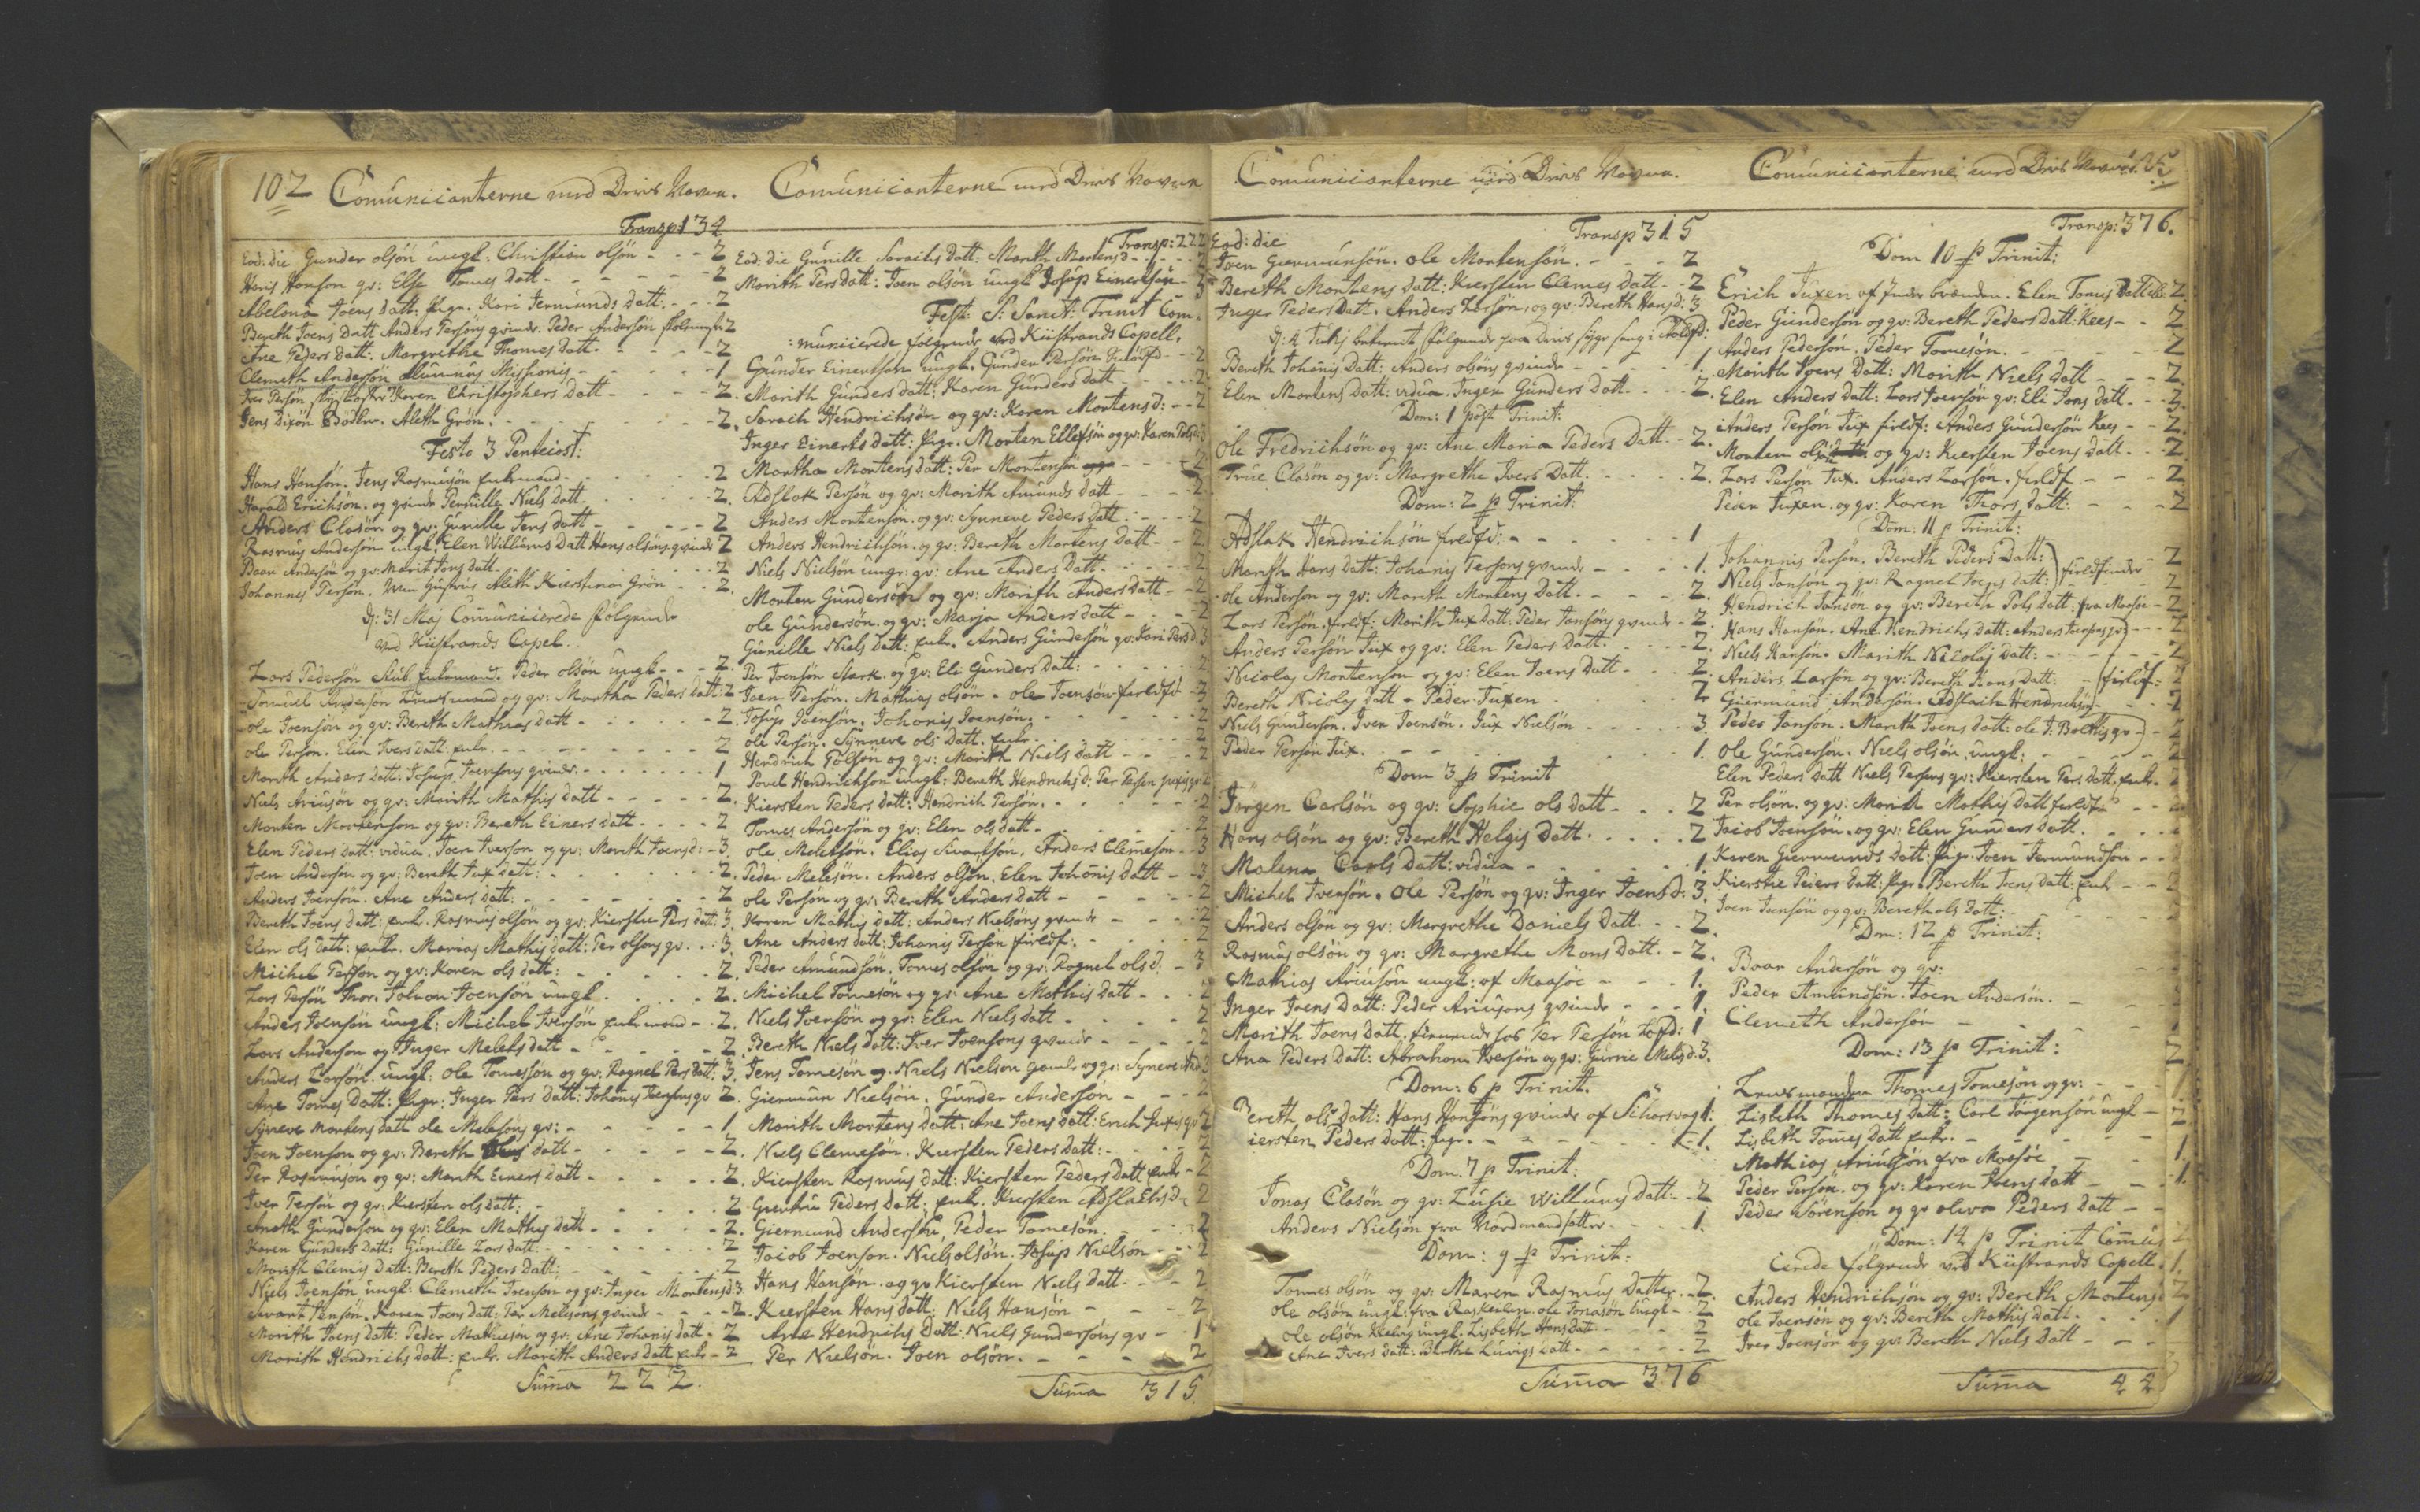 102 Communicanterne med Deres Navne.
Transp: 134
Eod: die Gunder olsön ungk: Christian olsön - - 2
Hans Hansön qv: Else Tomes Datt - - - 2
Abelona Joens datt: Kari Jermunds datt: - - 2
Bereth Joens Datt Anders Persöns qvinde. Peder Andersön 2
Ane Peders datt: Margrethe Thomes datt. - - - 2
Clemeth Andersön Alumnus Missionis - - - 1
Karen Christophers Datt - - - 2.
Jens Dixön Bödker. Aleth Grön. - - - 2.
Festo 3 Pentecost:
Hans Hansön. Jens Rasmusön Enkemand - - - 2
Harald Erichsön. og qvinde Pernille Niels datt. - - 2.
Anders Clasön og qv: Gunille Jens datt - - - 2
Rasmus Andersön ungk: Elen Willums Datt Hans olsöns qvinde 2
Baar Andersön og qv: Marit Jons datt. - - - 2
Johannes Persön. Aleth Kierstina Grön - - 2.
d: 31 Maj Communicerede fölgende
ved Kiistrands Capel.
Lars Pedersön Enkemand. Peder olsön ungk - - 2.
Samuel Andersön og qv: Martha Peders datt: 2
ole Joensön og qv: Bereth Mathias datt - - - 2.
ole Persön. Elen Ivers datt: enke. - - - 2
Marith Anders datt: Josups Joensöns qvinde. - - - 1
Niels Ariusön og qv: Marith Mathis datt - - - 2.
Morten Mortensön og qv: Bereth Einers datt - - - 2
Elen Peders datt: vidua. Joen Iversön og qv: Marith Joens d: - 3.
Joen Andersön og qv: Bereth Tux datt: - - - 2.
Anders Joensön. Ane Anders datt: - - - 2
Bereth Joens datt: enk. Rasmus olsön og qv: Kierstin Pers datt: 3.
Elen ols datt: enke. Marias Mathis datt: Per olsöns qv. - 3.
Michel Persön og qv: Karen ols datt: - - - 2.
Lars Persön Thor. Joensön ungk - - - 2.
Anders Joensön ungk: Michel Iversön Enkemand - 2.
Lars Andersön og Inger Melchs datt - - - 2.
Anders Larsön. ungk: ole Tomesön og qv: Ragnel Pers datt: 3.
Ane Tomes Datt: Inger Pers datt: Johanis Joensöns qv 2.
Syneve Mortens datt ole Melesöns qv: - - - 1.
Joen Joensön og qv: Bereth datt - - - 2.
Per Rasmusön og qv: Marith Einers datt - - - 2.
Iver Persön og qv: Kiersten ols datt: - - - 2
Gundersön og qv: Elen Mathis datt - - - 2.
Karen Gunders datt: Gunille Lars datt: - - - 2
Marith Clemis Datt: Bereth Peders Datt: - - - 2
Niels Joensön ungk: Clemeth Joensön og qv: Inger Mortens d: 3
Karen Joens datt: Per Melesöns qvinde - - 2.
Marith Joens datt: Peder Mathisen og qv: Ane Johanis datt - 2
Marith Hendrichs datt: enke. Marith Anders datt enke - 2
Summa 222.
Communicanterne med Deres Navne
Transp: 222
Eod: die Gunille Sarachs datt: Marith Mortens d - - 2
Marith Pers Datt: Joen olsön ungk Josup Einertsön - 3
Fest: S: Sanct: Trinit Com-
:municerede fölgende ved Kiistrands Capell.
Gunder Einertsön ungk. Gunder Persön - - 2
Marith Gunders datt: Karen Gunders datt - - - 2.
Sarach Hendrichsön og qv: Karen Mortens d: - - 2
Inger Einerts datt: Morten Ellefsön og qv: Karen 3
Martha Mortens datt: Per Mortensön - - - 2
Adslak Persön og qv: Marith Amunds datt - - - 2.
Anders Mortensön. og qv: Synneve Peders datt: - - 2
Anders Hendrichsön. og qv: Bereth Mortens datt - - 2
Niels Nielsön qv: Ane Anders Datt. - - - 2
Morten Gundersön og qv: Marith Anders datt - - 2
ole Gundersön. og qv: Marja Anders datt - - 2
Gunille Niels datt: enke. Anders Gundersön qv: Kari Pers d: 3
Per Joensön Stark. og qv: Ele Gunders datt: - - - 2
Joen Persön. Mathias olsön. ole Joensön - 3
Josup Joensön. Johanis Joensön. - - - 2
ole Persön. Synneve ols datt. enke. - - - 2
Hendrich Polsön og qv: Marith Niels datt - - - 2
Povel Hendrichsön ungk: Bereth Hendrichs d: 2
Kiersten Peders datt: Hendrich Persön. - - - 2
Tomes Andersön og qv: Elen ols datt - - - 2
ole Melchsön. Elias Sivartsön. Anders Clemesön - 3
Peder Melesön. Anders olsön. Elen Johanis datt - 3
ole Persön og qv: Bereth Anders datt - - - 2
Karen Mathis datt: Anders Nielsöns qvinde - - - 2
Ane Anders datt: Johanis Persön fieldf: - - - 2
Peder Amundsön. Tomes olsön og qv: Ragnel ols d: - 3
Michel Tomesön og qv: Ane Mathis datt - - - 2
Niels Iversön og qv: Elen Niels datt - - - 2
Bereth Niels datt: Iver Joensöns qvinde - - - 2
Jens Tomesön og Niels Nielsen og qv: Syneve 3
Giermun Nielsön. Gunder Andersön - - - 2
Marith Mortens Datt: Ane Joens Datt: Erich Tuxis qv 2
Niels Clemesön. Kiersten Peders datt: - - - 2
Kiersten Rasmus datt: Kiersten Peders datt enke - 2
Giertru Peders Datt: enk. Kiersten Adslachs d - 2
Giermund Andersön, Peder Tomesön. - - - 2
Jacob Joensön. Niels olsön. Josup Nielsön - - - 2
Hans Hansön. og qv Kiersten Niels datt - - - 2
Kiersten Hans datt: Niels Hansön - - - 2
Ane Hendrichs Datt: Niels Gundersöns qv - 1
Per Nielsön. Joen olsön. - - - 2
Summa 315
Communicanterne med Deres Navne.
Transp 315
Eod: die
Joen Giermunsön. ole Mortensön. - - - 2
Bereth Mortens datt: Kiersten Clemes datt - - 2
Inger Peders Datt. Anders Larsön. og qv: Bereth Hans d: 3
Bereth Johanis datt: Anders olsöns qvinde - - - 1
Elen Mortens Datt: vidua. Inger Gunders datt. - - 2.
Dom: 1 post Trinit:
ole Fredrichsön og qv: Ane Maria Peders Datt. - 2.
True Clasön og qv: Margrethe Ivers Datt. - - - 2.
Dom: 2 p Trinit:
Adslak Hendrichsön - - - 1
Marith Hans datt: Johanis Persöns qvinde - - - 1.
ole Andersön og qv: Marith Mortens Datt. - - - 2.
Lars Persön. fieldf: Marith Tux datt: Peder Jansöns qvinde - 2.
Anders Persön Tux og qv: Elen Peders Datt. - - - 2.
Nicolay Mortensön og qv: Elen Joens Datt - - - 2.
Bereth Nicolaj datt - Peder Tuxen - - - 2
Niels Gundersön. Iver Joensön. Tux Nielsön - - - 3.
Peder Persön Tux. - - - 1.
Dom 3 p Trinit
Jörgen Carlsön og qv: Sophie ols datt - - - 2
Hans olsön og qv: Bereth Helgis datt - - - 2
Malena Carls Datt: vidua - - - 1.
Michel Ivensön. Ole Persön og qv: Inger Joens d: 3.
Anders olsön og qv: Margrethe Daniels Datt. - - 2.
Rasmus olsön og qv: Margrethe Mons datt. - 2.
Mathias Ariusön ungk: af Maasöe - - - 1.
Inger Joens Datt: Peder Ariusöns qvinde - - - 1.
Marith Joens datt. hos Per Persön 1
Ana Peders Datt: Abraham Iversön og qv: 3.
Dom: 6 p Trinit.
Bereth ols datt: Hans Hansöns qvinde af 1.
iersten Peders datt: - - - 1.
Dom. 7 p Trinit:
Jonas Clasön og qv: Lusie Willums datt: - 2
Anders Nielsön fra Nordmandsætter - - - 1.
Dom: 9 p Trinit:
Tomes olsön og qv: Maren Rasmus Datter. - 2.
ole olsön ungk: fra ole Jonasön ungk - 2
ole olsön ungk. Lisbeth Hans datt - - - 2
Ane Ivers datt: Birthe Luvigs datt - - - 2
Summa 376
Communicanterne med Deres Navne.
Transp: 376.
Dom 10 p Trinit:
Erich Tuxen af Elen Tomis Datt 2
Peder Gundersön og qv: Bereth Peders datt: Kees - - 2
Anders Pedersön. Peder Tomesön. - - - 2
Marith Joens Datt: Marith Niels datt - - - 2.
Elen Anders datt: Lars Joensön qv: Eli Jons datt - - 3.
Anders Persön Tux fieldf: Anders Gundersön Kees - - 2.
Morten og qv: Kiersten Joens datt - - 2.
Lars Persön Tux. Anders Larsön. fieldf - - - 2
Peder Tuxen. og qv: Karen Thors datt: - - - 2
Dom: 11 p Trinit:
Johannis Persön. Bereth Peders Datt: 2
Niels Jansön og qv: Ragnel Joens datt: 2
Hendrich Jansön og qv: Bereth Pols datt: fra Maasöe - 2
Hans Hansön. Ane Hendrichs datt: Anders - - 2
Niels Hansön. Marith Nicolaj datt: - - - 2
Anders Larsön og qv: Bereth Hans datt: fieldf: 2
Giermund Andersön. Adslach Hendrichsön - 2
Peder Jansön. Marith Joens datt:
ole Gundersön. Niels olsön. ungk: - - -
Elen Peders datt Niels Persöns qv: Kiersten Pers datt. enke -
Per olsön. og qv: Marith Mathis datt fieldf: - -
Jacob Joensön. og qv: Elen Gunders datt. - -
Karen Giermunds datt: Joen Jermundsön - -
Kierstie Peders datt: Bereth Joens datt: enk - -
Joen Joensön og qv: Bereth ols datt: - -
Dom: 12 p Trinit:
Baar Andersön og qv: - -
Peder Amundsön. Joen Andersön. - -
Clemeth Andersön - -
Dom: 13 p Trinit:
Thomes Tomesön og qv: - -
Lisbeth Thomes datt: Carl Jörgensön ungk - 2
Lisbeth Tomes datt enk. - - -
Mathias Ariusön fra Maasöe - - 1.
Peder Persön. og qv: Karen Ivers datt - - 1.
Peder Sörensön og qv oliva Peders datt - -
Dom: 14 p Trinit Commu
cerede fölgende ved Kiistrands Capell.
Anders Hendrichsön og qv: Bereth Mortens d 2
ole Joensön og qv: Bereth Mathis datt. - -
Iver Joensön og qv: Bereth Niels datt - -
Summa 44